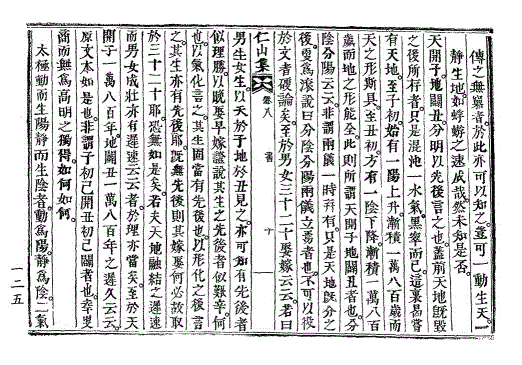 傳之無窮者於此亦可以知之豈可一動生天一
靜生地如蜉蝣之速成哉然未知是否
天開子地闢丑分明以先後言之也蓋前天地既毀
之後所存者只是混沌一水氣黑窣而已這裏曷嘗
有天地至子初始有一陽上升漸積一萬八百歲而
天之形斯具至丑初方有一陰下降漸積一萬八百
歲而地之形能全此則所謂天開子地闢丑者也分
陰分陽云云非謂兩儀一時幷有只是天地既分之
後更爲滾說曰分陰分陽兩儀立焉者也不可以役
於文者硬論矣至於男女三十二十娶嫁云云若曰
仁山集 卷八 書 十
男生女生以天於子地於丑見之亦可知有先後者
似理勝以既娶早嫁證說其生之先後者似艱辛何
也以氣化言之其生固當有先後也以形化之後言
之其生亦有先後耶既無先後則其嫁娶何必故取
於三十二十耶恐無如是矣若夫天地融結之遲速
而男女成壯亦有遲速云云者於理亦當矣至於天
開子一萬八百年地闢丑一萬八百年之遲久云云
原文本如是也非謂子初已開丑初已闢者也幸更
商而無爲高明之獨得如何如何
太極動而生陽靜而生陰者動爲陽靜爲陰二氣
一二五